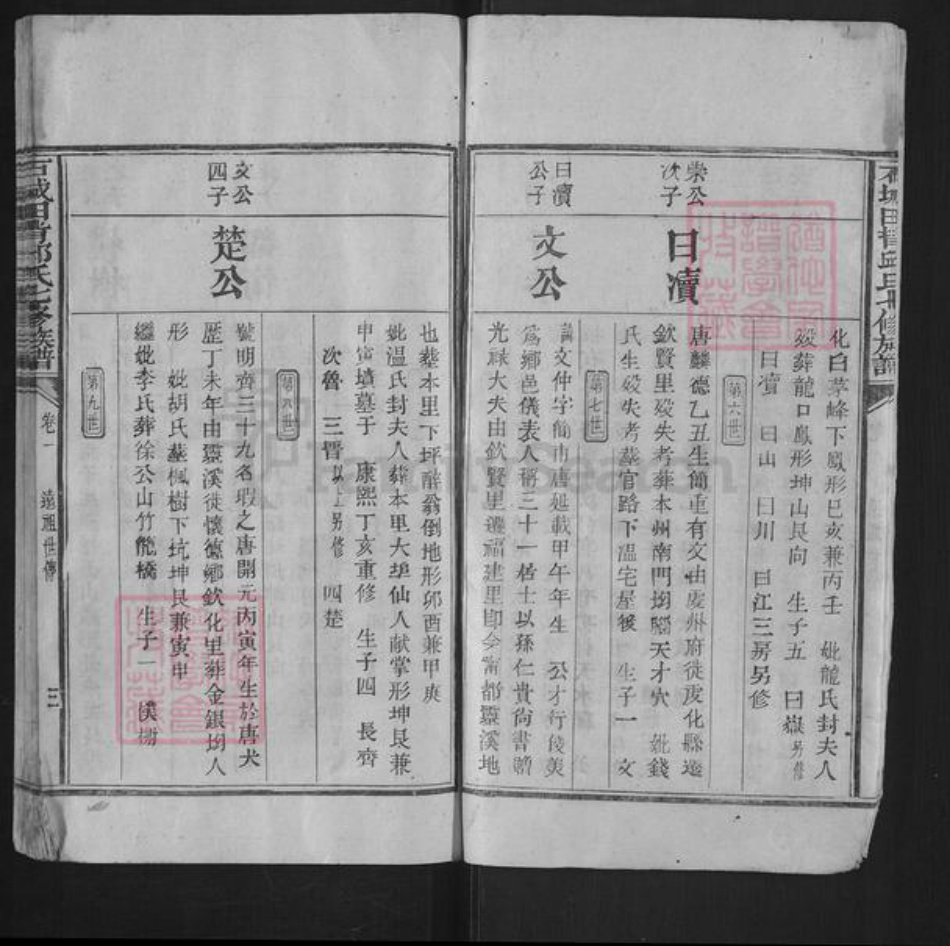 化白茅峰下鳳形巳亥兼丙壬 妣龍氏封夫人
歿葬龍口鳳形坤山艮向 生子五 曰嶽另修
曰瀆 曰山 曰川 曰江三房另修
第六世
崇公次子
曰瀆
唐麟德乙丑生簡重有文由虔州府徙虔化縣遷
欽賢里歿失考葬本州南門坳腦天才穴 妣錢
氏生歿失考葬官路下溫宅屋後 生子一 文
第七世
曰瀆公子
文公
諱文仲字簡市唐延載甲午年生 公才行後美
為鄉邑儀表人稱三十一居士以孫仁貴尚書贈
光祿大夫由欽賢里遷福建里即今甯都靈溪地
也葬本里下坪醉翁倒地形卯酉兼甲庚
妣溫氏封夫人葬本里大埠仙人献掌形坤艮兼
申寅墳墓于 康熙丁亥重修 生子四 長齊
次魯 三晉以上另修 四楚
第八世
文公四子
楚公
號明齊三十九名瑕之唐開元丙寅年生於唐大
歷丁未年由靈溪徙懷德鄉欽化里葬金銀坳人
形 妣胡氏葬楓樹下坑坤艮兼寅申
繼妣李氏葬徐公山竹龍橋 生子一 僕
第九世
石城田背邱氏七修族譜
卷一
遠祖世傳
三